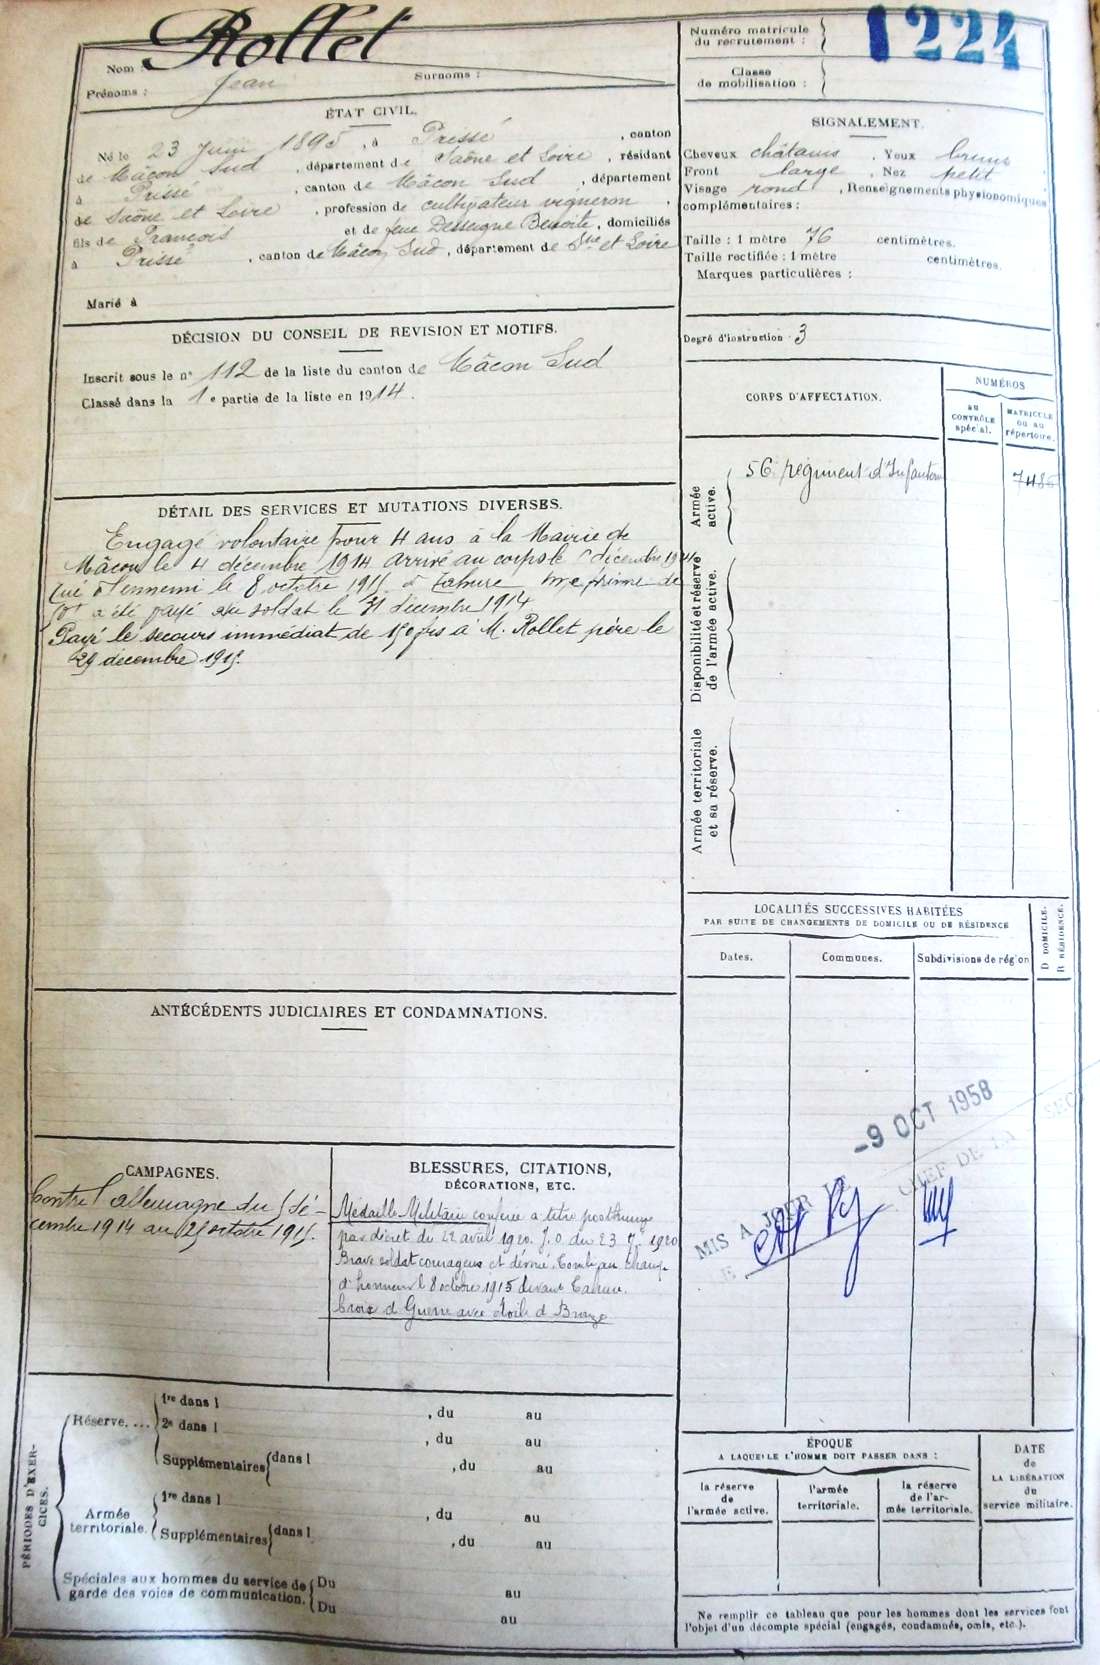 Nom : Rollet
Prénoms : Jean Surnoms :
ÉTAT CIVIL.
Né le 23 Juin 1895, à Prissé, canton
de Mâcon Sud, département de Saône et Loire, résidant
à Prissé, canton de Mâcon Sud, département
de Saône et Loire, profession de cultivateur vigneron,
fils de François et de feue Desseigne Benoîte, domiciliés
à Prissé, canton de Mâcon Sud, département de S.ne et Loire
Marié à
DÉCISION DU CONSEIL DE REVISION ET MOTIFS.
Inscrit sous le n° 112 de la liste du canton de Mâcon Sud
Classé dans la 1e partie de la liste en 1914.
DÉTAIL DES SERVICES ET MUTATIONS DIVERSES.
Engagé volontaire pour 4 ans à la Mairie de
Mâcon le 4 décembre 1914 arrivé au corps le décembre 1914
Tué à l'ennemi le 8 octobre 1915 à Tahure prime de
a été payé au soldat le 31 décembre 1914
Payé le secours immédiat de 150 frs à M. Rollet père le
29 décembre 1915.
ANTÉCÉDENTS JUDICIAIRES ET CONDAMNATIONS.
CAMPAGNES.
Contre l'allemagne du 5 dé-
cembre 1914 au octobre 1915.
BLESSURES, CITATIONS,
DÉCORATIONS, ETC.
Médaille Militaire conférée à titre posthume
par décret du 22 avril 1920. J.O. du 23 1920
Brave soldat courageux et dévoué. Tombé au champ
d'honneur le 8 octobre 1915 devant Tahure.
Croix de Guerre avec étoile de Bronze
PÉRIODES D'EXER-
CICES.
Réserve. ...
1re dans l , du au
2e dans l , du au
Supplémentaires dans l , du au
Armée
territoriale.
1re dans l , du au
Supplémentaires dans l , du au
Spéciales aux hommes du service de
garde des voies de communication.
Du au
Du au
Numéro matricule
du recrutement : 1224
Classe
de mobilisation :
SIGNALEMENT.
Cheveux châtains. Yeux bruns
Front large. Nez petit
Visage rond, Renseignements physionomiques
complémentaires :
Taille : 1 mètre 76 centimètres.
Taille rectifiée : 1 mètre centimètres.
Marques particulières :
Degré d'instruction 3
CORPS D'AFFECTATION.
NUMÉROS
au
CONTRÔLE
spécial.
MATRICULE
OU AU
répertoire.
Armée
active.
56 régiment d'Infanterie
Disponibilité et réserve
de l'armée active.
Armée territoriale
et sa réserve.
LOCALITÉS SUCCESSIVES HABITÉES
PAR SUITE DE CHANGEMENTS DE DOMICILE OU DE RÉSIDENCE
D DOMICILE.
R RÉSIDENCE.
Dates. Communes. Subdivisions de région
-9 OCT 1958
MIS A JOUR LE
LE CHEF DE LA SEC
ÉPOQUE
A LAQUELLE L'HOMME DOIT PASSER DANS :
la réserve
de
l'armée active.
l'armée
territoriale.
la réserve
de l'ar-
mée territoriale.
DATE
de
LA LIBÉRATION
du
service militaire.
Ne remplir ce tableau que pour les hommes dont les services font
l'objet d'un décompte spécial (engagés, condamnés, omis, etc.).